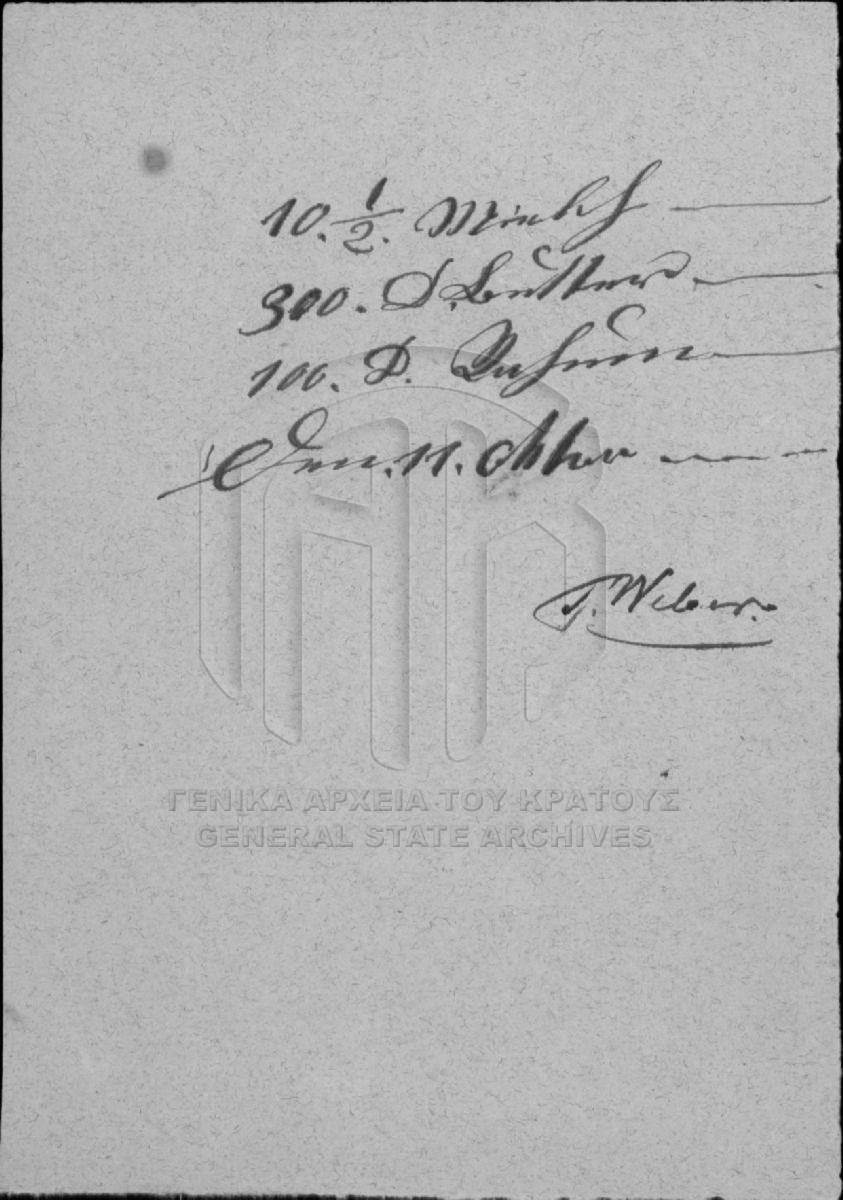 10. 1/2. Milch
300. D. Butter
100. D. Rahm
Den. 11. Okber
T. Weber.
ΓΕΝΙΚΑ ΑΡΧΕΙΑ ΤΟΥ ΚΡΑΤΟΥΣ
GENERAL STATE ARCHIVES